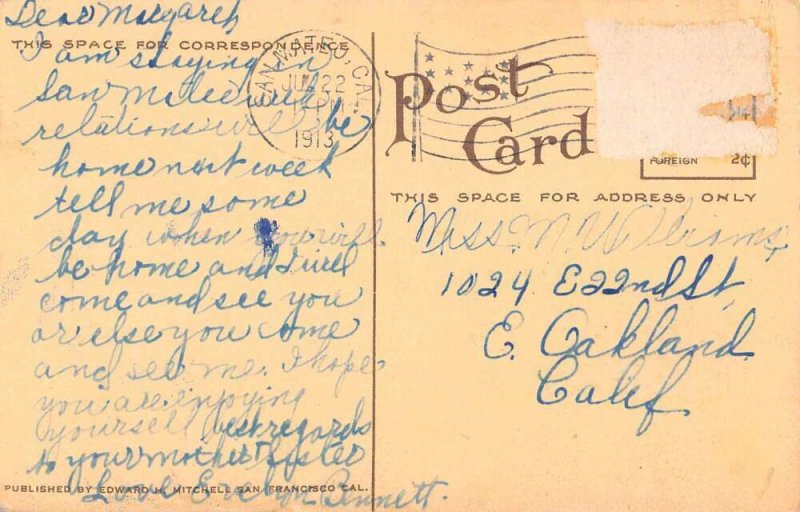 Dear Margaret
THIS SPACE FOR CORRESPONDENCE
I am staying in
San Mateo with
relations will be
home next week
tell me some
day when you will
be home and I will
come and see you
or else you come
and see me. I hope
you are enjoying
yourself best regards
to your mother & sister
PUBLISHED BY EDWARD H. MITCHELL SAN FRANCISCO CAL.
Love Evelyn Bennett.
SAN MATEO, CAL.
22
PM
1913
Post
Card
FOREIGN 2¢
THIS SPACE FOR ADDRESS ONLY
Miss M Williams
1024 E 22nd St
E. Oakland
Calif.